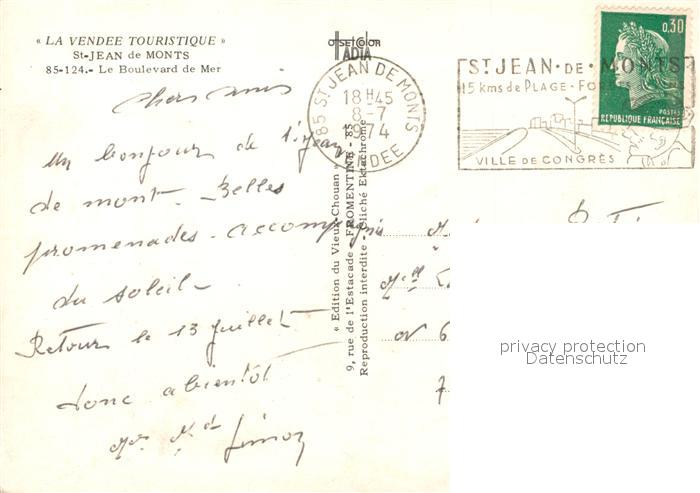 « LA VENDEE TOURISTIQUE »
St-JEAN de MONTS
85-124.- Le Boulevard de Mer
OFFSET COLOR
IADIA
85 ST JEAN DE MONTS
18 H 45
8-7
1974
VENDEE
ST JEAN·DE·MONTS
15 kms de PLAGE·FOR
VILLE DE CONGRÈS
0,30
POSTES
REPUBLIQUE FRANÇAISE
chers amis
Un bonjour de St Jean
de mont. Belles
promenades. accompagnés
du soleil
Retour le 13 juillet
donc a bientôt
« Edition du Vieux Chouan »
9, rue de l'Estacade - FROMENTINE - 85
Reproduction interdite - Cliché Ektachrome
privacy protection
Datenschutz